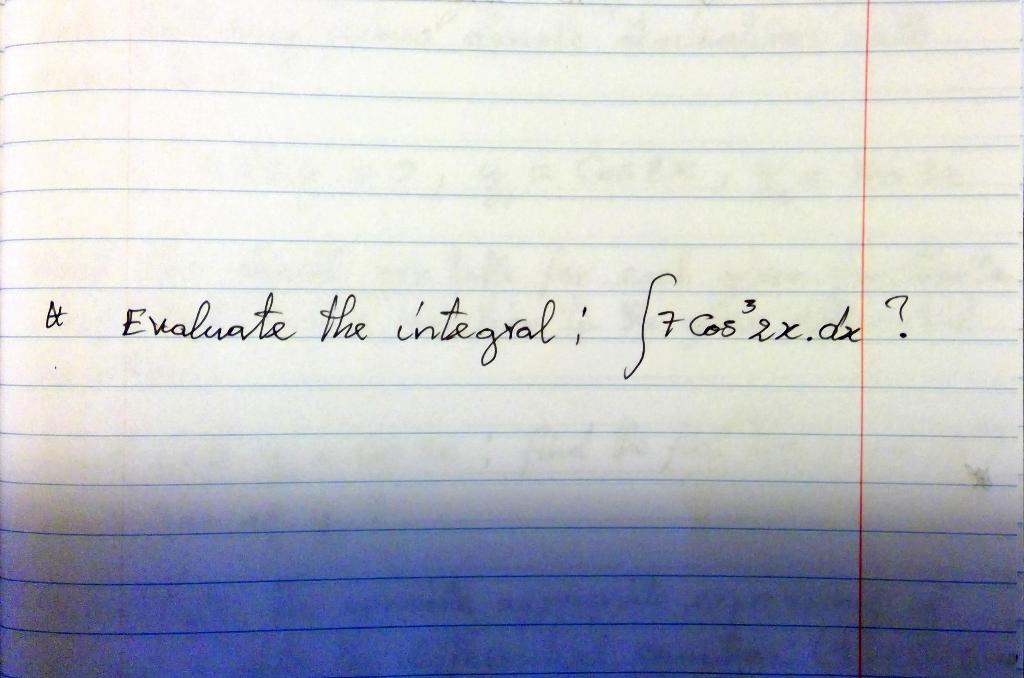 Evaluate the integral; ∫7 Cos³2x.dx ?